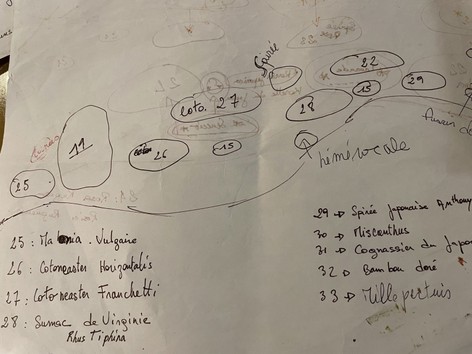 Spirée
22
15
29
coto. 27
28
11
coton 26
15
hémérocale
25
25 : Mahonia . Vulgaire
26 : Cotoneaster Horizontalis
27 : Cotoneaster Franchetti
28 : Sumac de Virginie
Rhus Tiphina
29 → Spirée Japonaise Anthony
30 → Miscanthus
31 → Cognassier du Japon
32 → Bambou doré
33 → Millepertuis